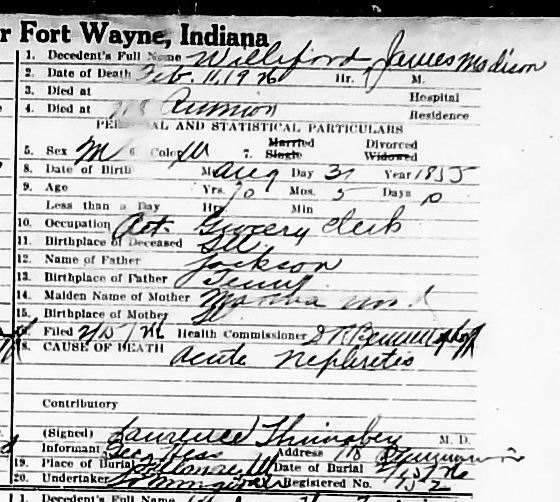 r Fort Wayne, Indiana
1. Decedent's Full Name Williford, James Madison
2. Date of Death Feb. 11, 1926 Hr. M.
3. Died at Hospital
4. Died at Reunion Residence
PERSONAL AND STATISTICAL PARTICULARS
5. Sex M 6. Color W 7. Married Single Divorced Widowed
8. Date of Birth M Aug Day 31 Year 1855
9. Age Yrs. 70 Mos. 5 Days
Less than a Day Hrs Min
10. Occupation Ret. Grocery Clerk
11. Birthplace of Deceased Ill
12. Name of Father Jackson
13. Birthplace of Father Tenn
14. Maiden Name of Mother Martha
15. Birthplace of Mother
Filed Health Commissioner
18. CAUSE OF DEATH Acute Nephretis
Contributory
(Signed) Laurence M. D.
Informant Address 118
19. Place of Burial Date of Burial
20. Undertaker Registered No.
1. Decedent's Full Name